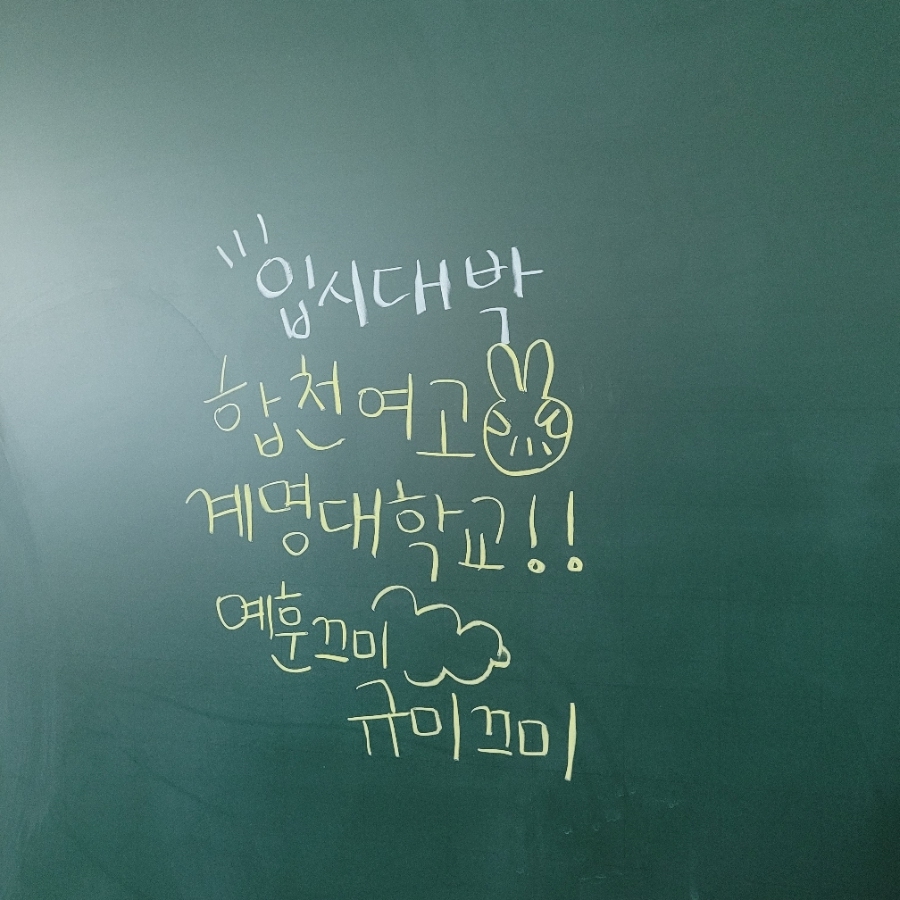 입시대박
합천여고
계명대학교!!
예훈끄미
규미끄미